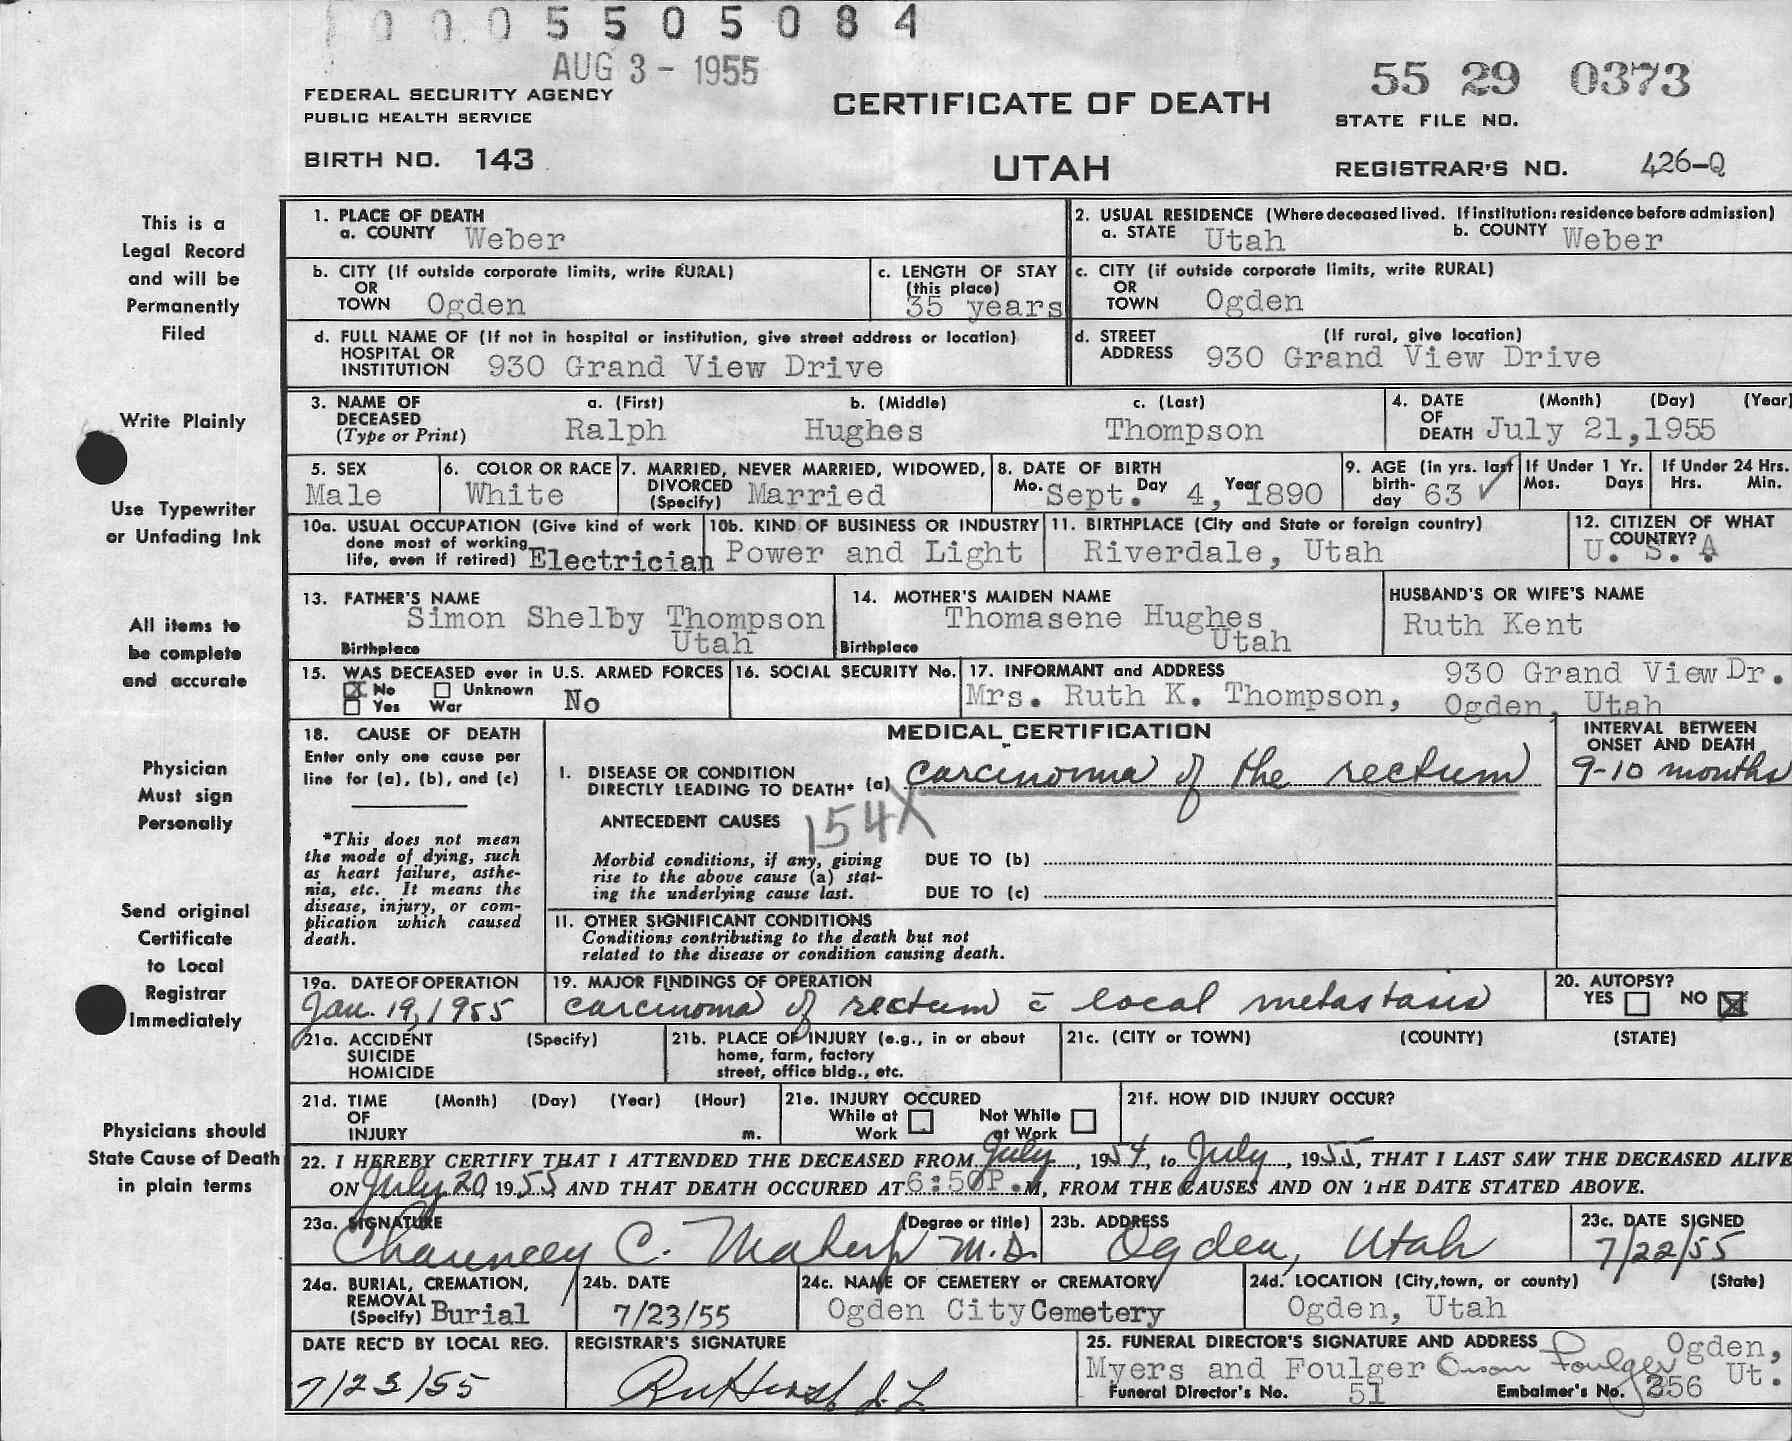 0 0 0 5 5 0 5 0 8 4
AUG 3 - 1955
FEDERAL SECURITY AGENCY
PUBLIC HEALTH SERVICE
BIRTH NO. 143
CERTIFICATE OF DEATH
UTAH
55 29 0373
STATE FILE NO.
REGISTRAR'S NO. 426-Q
This is a
Legal Record
and will be
Permanently
Filed
Write Plainly
Use Typewriter
or Unfading Ink
All items to
be complete
and accurate
Physician
Must sign
Personally
Send original
Certificate
to Local
Registrar
Immediately
Physicians should
State Cause of Death
in plain terms
1. PLACE OF DEATH
a. COUNTY Weber
2. USUAL RESIDENCE (Where deceased lived. If institution: residence before admission)
a. STATE Utah b. COUNTY Weber
b. CITY (If outside corporate limits, write RURAL)
OR
TOWN Ogden
c. LENGTH OF STAY
(this place)
35 years
c. CITY (if outside corporate limits, write RURAL)
OR
TOWN Ogden
d. FULL NAME OF (If not in hospital or institution, give street address or location)
HOSPITAL OR
INSTITUTION 930 Grand View Drive
d. STREET (If rural, give location)
ADDRESS 930 Grand View Drive
3. NAME OF a. (First) b. (Middle) c. (Last)
DECEASED
(Type or Print) Ralph Hughes Thompson
4. DATE (Month) (Day) (Year)
OF
DEATH July 21,1955
5. SEX
Male
6. COLOR OR RACE
White
7. MARRIED, NEVER MARRIED, WIDOWED,
DIVORCED
(Specify) Married
8. DATE OF BIRTH
Mo. Sept. Day 4, Year 1890
9. AGE (in yrs. last
birth-
day 63 ✓
If Under 1 Yr.
Mos. Days
If Under 24 Hrs.
Hrs. Min.
10a. USUAL OCCUPATION (Give kind of work
done most of working
life, even if retired) Electrician
10b. KIND OF BUSINESS OR INDUSTRY
Power and Light
11. BIRTHPLACE (City and State or foreign country)
Riverdale, Utah
12. CITIZEN OF WHAT
COUNTRY?
U. S. A
13. FATHER'S NAME
Simon Shelby Thompson
Birthplace Utah
14. MOTHER'S MAIDEN NAME
Thomasene Hughes
Birthplace Utah
HUSBAND'S OR WIFE'S NAME
Ruth Kent
15. WAS DECEASED ever in U.S. ARMED FORCES
☒ No ☐ Unknown
☐ Yes War No
16. SOCIAL SECURITY No.
17. INFORMANT and ADDRESS 930 Grand View Dr.
Mrs. Ruth K. Thompson, Ogden, Utah
18. CAUSE OF DEATH
Enter only one cause per
line for (a), (b), and (c)
*This does not mean
the mode of dying, such
as heart failure, asthe-
nia, etc. It means the
disease, injury, or com-
plication which caused
death.
MEDICAL CERTIFICATION
I. DISEASE OR CONDITION
DIRECTLY LEADING TO DEATH* (a) carcinoma of the rectum
INTERVAL BETWEEN
ONSET AND DEATH
9-10 months
ANTECEDENT CAUSES 154X
Morbid conditions, if any, giving
rise to the above cause (a) stat-
ing the underlying cause last.
DUE TO (b)
DUE TO (c)
II. OTHER SIGNIFICANT CONDITIONS
Conditions contributing to the death but not
related to the disease or condition causing death.
19a. DATE OF OPERATION
Jan. 19, 1955
19. MAJOR FINDINGS OF OPERATION
carcinoma of rectum c̄ local metastasis
20. AUTOPSY?
YES ☐ NO ☒
21a. ACCIDENT (Specify)
SUICIDE
HOMICIDE
21b. PLACE OF INJURY (e.g., in or about
home, farm, factory
street, office bldg., etc.
21c. (CITY or TOWN) (COUNTY) (STATE)
21d. TIME (Month) (Day) (Year) (Hour)
OF
INJURY m.
21e. INJURY OCCURED
While at Work ☐ Not While at Work ☐
21f. HOW DID INJURY OCCUR?
22. I HEREBY CERTIFY THAT I ATTENDED THE DECEASED FROM July, 1954, to July, 1955, THAT I LAST SAW THE DECEASED ALIVE
ON July 20, 1955, AND THAT DEATH OCCURED AT 6:50P.M, FROM THE CAUSES AND ON THE DATE STATED ABOVE.
23a. SIGNATURE (Degree or title)
Chauncey C. M.D.
23b. ADDRESS
Ogden, Utah
23c. DATE SIGNED
7/22/55
24a. BURIAL, CREMATION,
REMOVAL
(Specify) Burial
24b. DATE
7/23/55
24c. NAME OF CEMETERY or CREMATORY
Ogden City Cemetery
24d. LOCATION (City,town, or county) (State)
Ogden, Utah
DATE REC'D BY LOCAL REG.
7/23/55
REGISTRAR'S SIGNATURE
25. FUNERAL DIRECTOR'S SIGNATURE AND ADDRESS Ogden,
Myers and Foulger Orson Foulger Ut.
Funeral Director's No. 51 Embalmer's No. 356